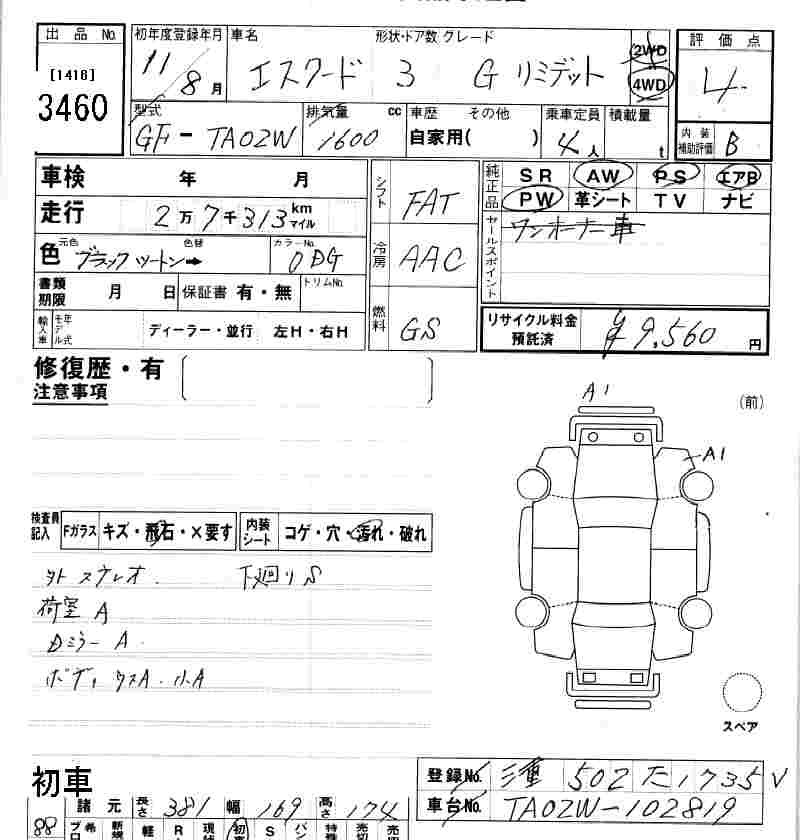 出品 No.
[1418]
3460
初年度登録年月 車名 形状・ドア数 グレード
11/8月 エスクード 3 G リミテット
2WD
4WD
評価点
4
内装補助評価 B
型式 排気量 cc 車歴 その他 乗車定員 積載量
GF-TA02W 1600 自家用( ) 4人 t
車検 年 月
走行 2万7千313km マイル
色 元色 ブラック 色替 ツートン➡ カラーNo. 0DG
書類期限 月 日 保証書 有・無 トリムNo.
輸入車 モデル年式 ディーラー・並行 左H・右H
シフト FAT
冷房 AAC
燃料 GS
純正品 SR AW PS エアB
PW 革シート TV ナビ
セールスポイント ワンオーナー車
リサイクル料金預託済 ¥9,560 円
修復歴・有
注意事項
A1
(前)
A1
検査員記入 Fガラス キズ・飛石・X要す 内装シート コゲ・穴・汚れ・破れ
下廻りS
荷室 A
Dミラー A
スペア
初車
登録No. 三重 502 た 1735
車台No. TA02W-102819
諸元 長さ 381 幅 169 高さ 174
88